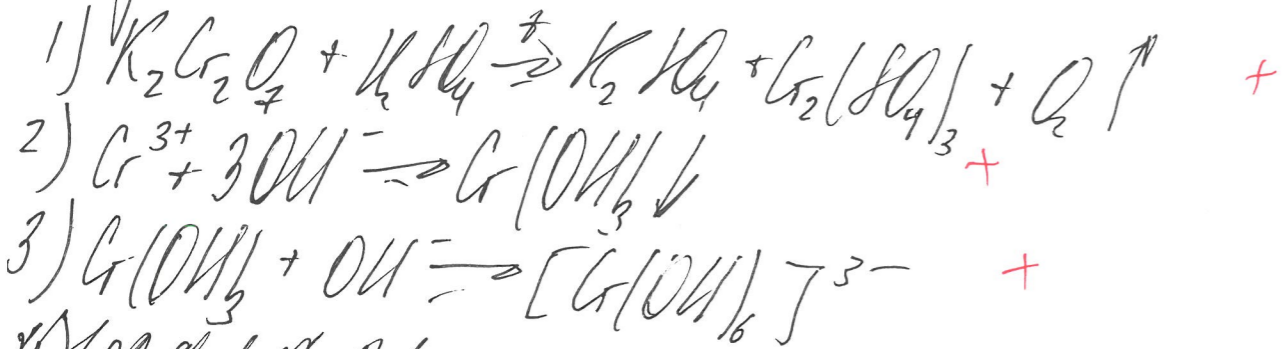 1) K₂Cr₂O₇ + H₂SO₄ →ᵗ K₂SO₄ + Cr₂(SO₄)₃ + O₂↑ +
2) Cr³⁺ + 3OH⁻ → Cr(OH)₃↓ +
3) Cr(OH)₃ + OH⁻ → [Cr(OH)₆]³⁻ +